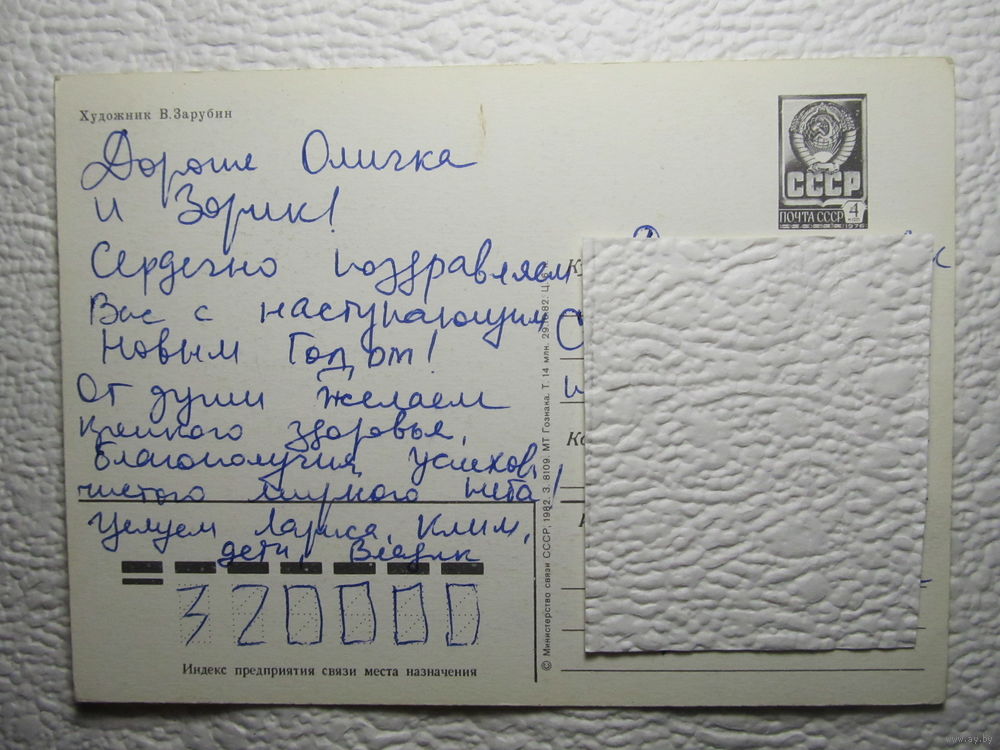 Художник В.Зарубин
СССР
ПОЧТА СССР 4
1976
Дорогие Оличка
и Зорик!
Сердечно поздравляем
Вас с наступающим
Новым Годом!
От души желаем
крепкого здоровья,
благополучия, успехов,
чистого мирного неба!
Целуем Лариса, Клим,
дети, Владик
320000
Индекс предприятия связи места назначения
© Министерство связи СССР, 1982. З. 8109. МТ Гознака. Т. 14 млн. 82. Ц.
www.ay.by